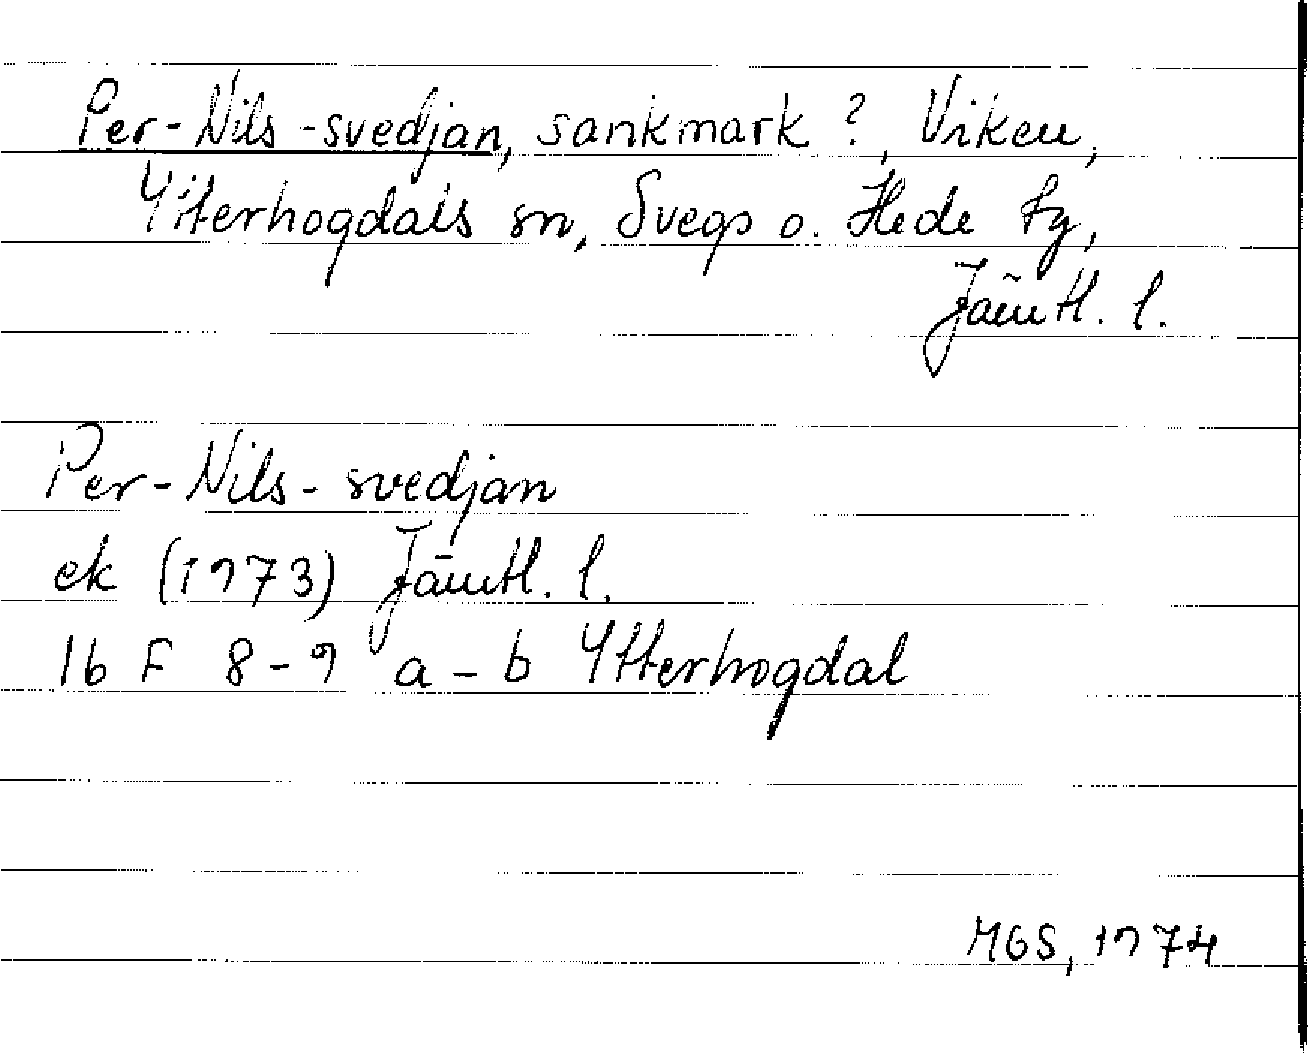 Per-Nils-svedjan, sankmark?, Viken,
Ytterhogdals sn, Svegs o. Hede tg,
Jämtl. l.
Per-Nils-svedjan
ek (1973) Jämtl. l.
16 F 8-9 a-b Ytterhogdal
MGS, 1974